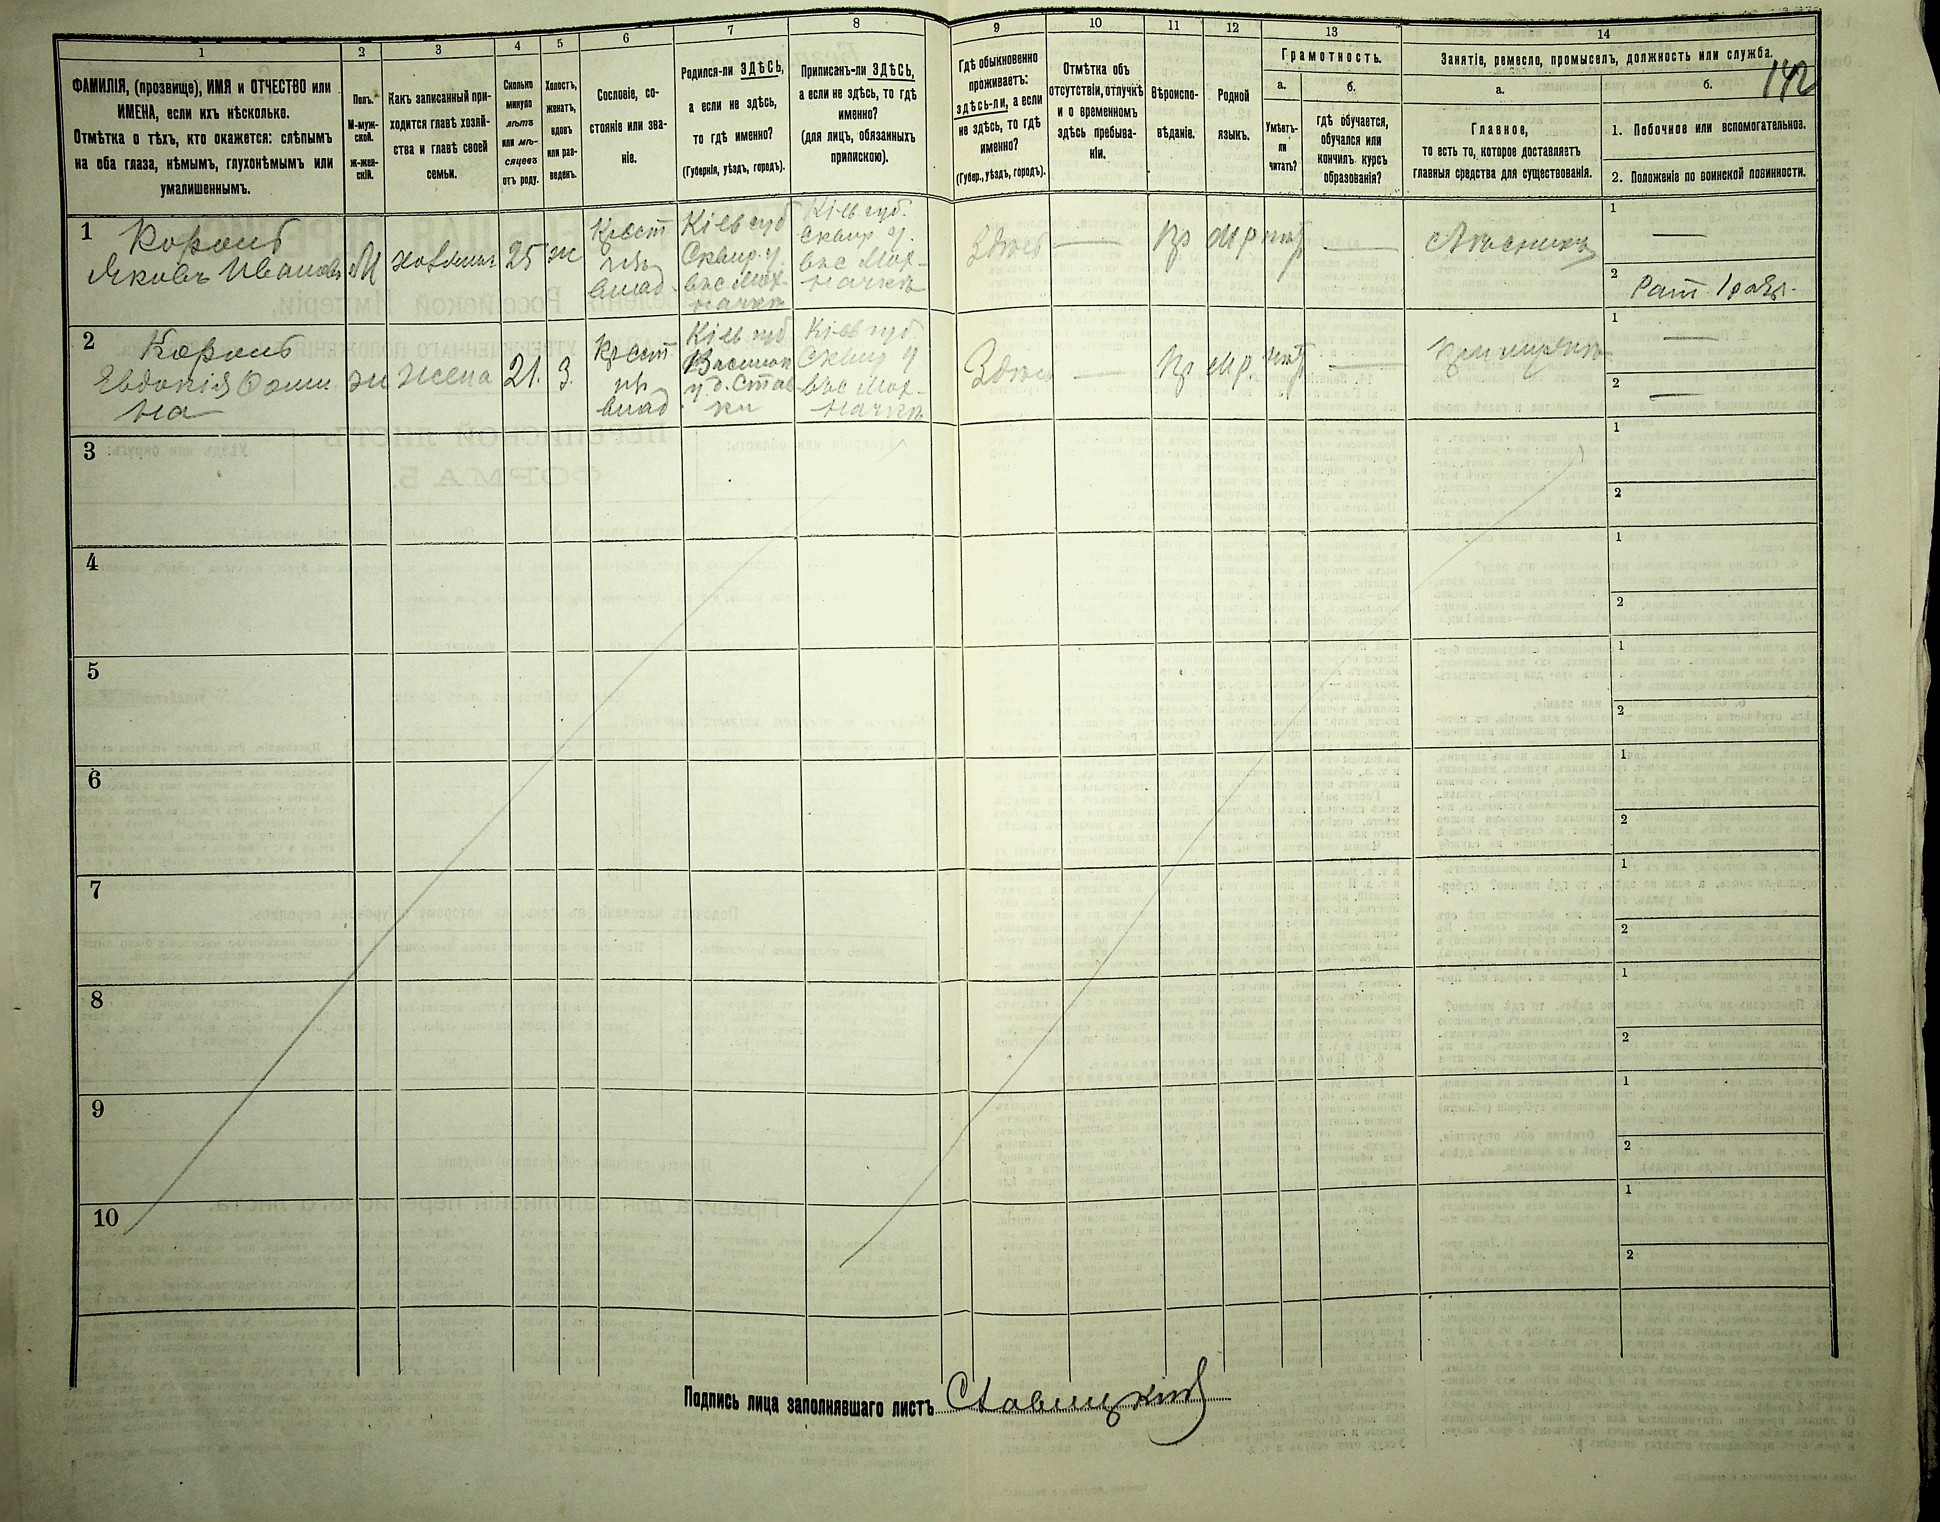 1
2
3
4
5
6
7
8
9
10
11
12
13
14
ФАМИЛІЯ, (прозвище), ИМЯ и ОТЧЕСТВО или
ИМЕНА, если ихъ нѣсколько.
Отмѣтка о тѣхъ, кто окажется: слѣпымъ
на оба глаза, нѣмымъ, глухонѣмымъ или
умалишеннымъ.
Полъ.
М-муж-
ской.
ж-жен-
скій.
Какъ записанный при-
ходится главѣ хозяй-
ства и главѣ своей
семьи.
Сколько
минуло
лѣтъ
или мѣ-
сяцевъ
отъ роду.
Холостъ,
женатъ,
вдовъ
или раз-
веденъ.
Сословіе, со-
стояніе или зва-
ніе.
Родился-ли ЗДѢСЬ,
а если не здѣсь,
то гдѣ именно?
(Губернія, уѣздъ, городъ).
Приписанъ-ли ЗДѢСЬ,
а если не здѣсь, то гдѣ
именно?
(для лицъ, обязанныхъ
припискою).
Гдѣ обыкновенно
проживаетъ:
здѣсь-ли, а если
не здѣсь, то гдѣ
именно?
(Губер., уѣздъ, городъ).
Отмѣтка объ
отсутствіи, отлучкѣ
и о временномъ
здѣсь пребыва-
ніи.
Вѣроиспо-
вѣданіе.
Родной
языкъ.
Грамотность.
а.
Умѣетъ-
ли
читать?
б.
гдѣ обучается,
обучался или
кончилъ курсъ
образованія?
Занятіе, ремесло, промыселъ, должность или служба.
142
а.
Главное,
то есть то, которое доставляетъ
главныя средства для существованія.
б.
1. Побочное или вспомогательное.
2. Положеніе по воинской повинности.
1
Король
Яковъ Ивановъ
М
хозяинъ
25
ж
Крест
влад.
Кіев губ
Сквир. у.
въ с Мох-
начкѣ
Кіев губ.
Сквир. у.
въ с Мох-
начкѣ
Здѣсь
Пр
Мр
нѣтъ
Лѣсникъ
1
2
Рат. 1 разр.
2
Король
Евдокія Фоми
на
ж
жена
21.
З.
Крест.
влад.
Кіев губ
Васильк
у д. Став
ки
Кіев губ
Сквир у
въ с Мох-
начкѣ
Здѣсь
Пр
Мр.
нѣтъ
При мужѣ
1
2
3
1
2
4
1
2
5
1
2
6
1
2
7
1
2
8
1
2
9
1
2
10
1
2
Подпись лица заполнявшаго листъ Ставицкій